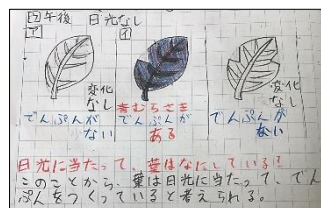 ウ午後 日光なし
ア イ
変化なし
でんぷんがない
青むらさき
でんぷんがある
変化なし
でんぷんがない
日光に当たって、葉はなにしている?
このことから、葉は日光に当たって、でん
ぷんをつくっていると考えられる。